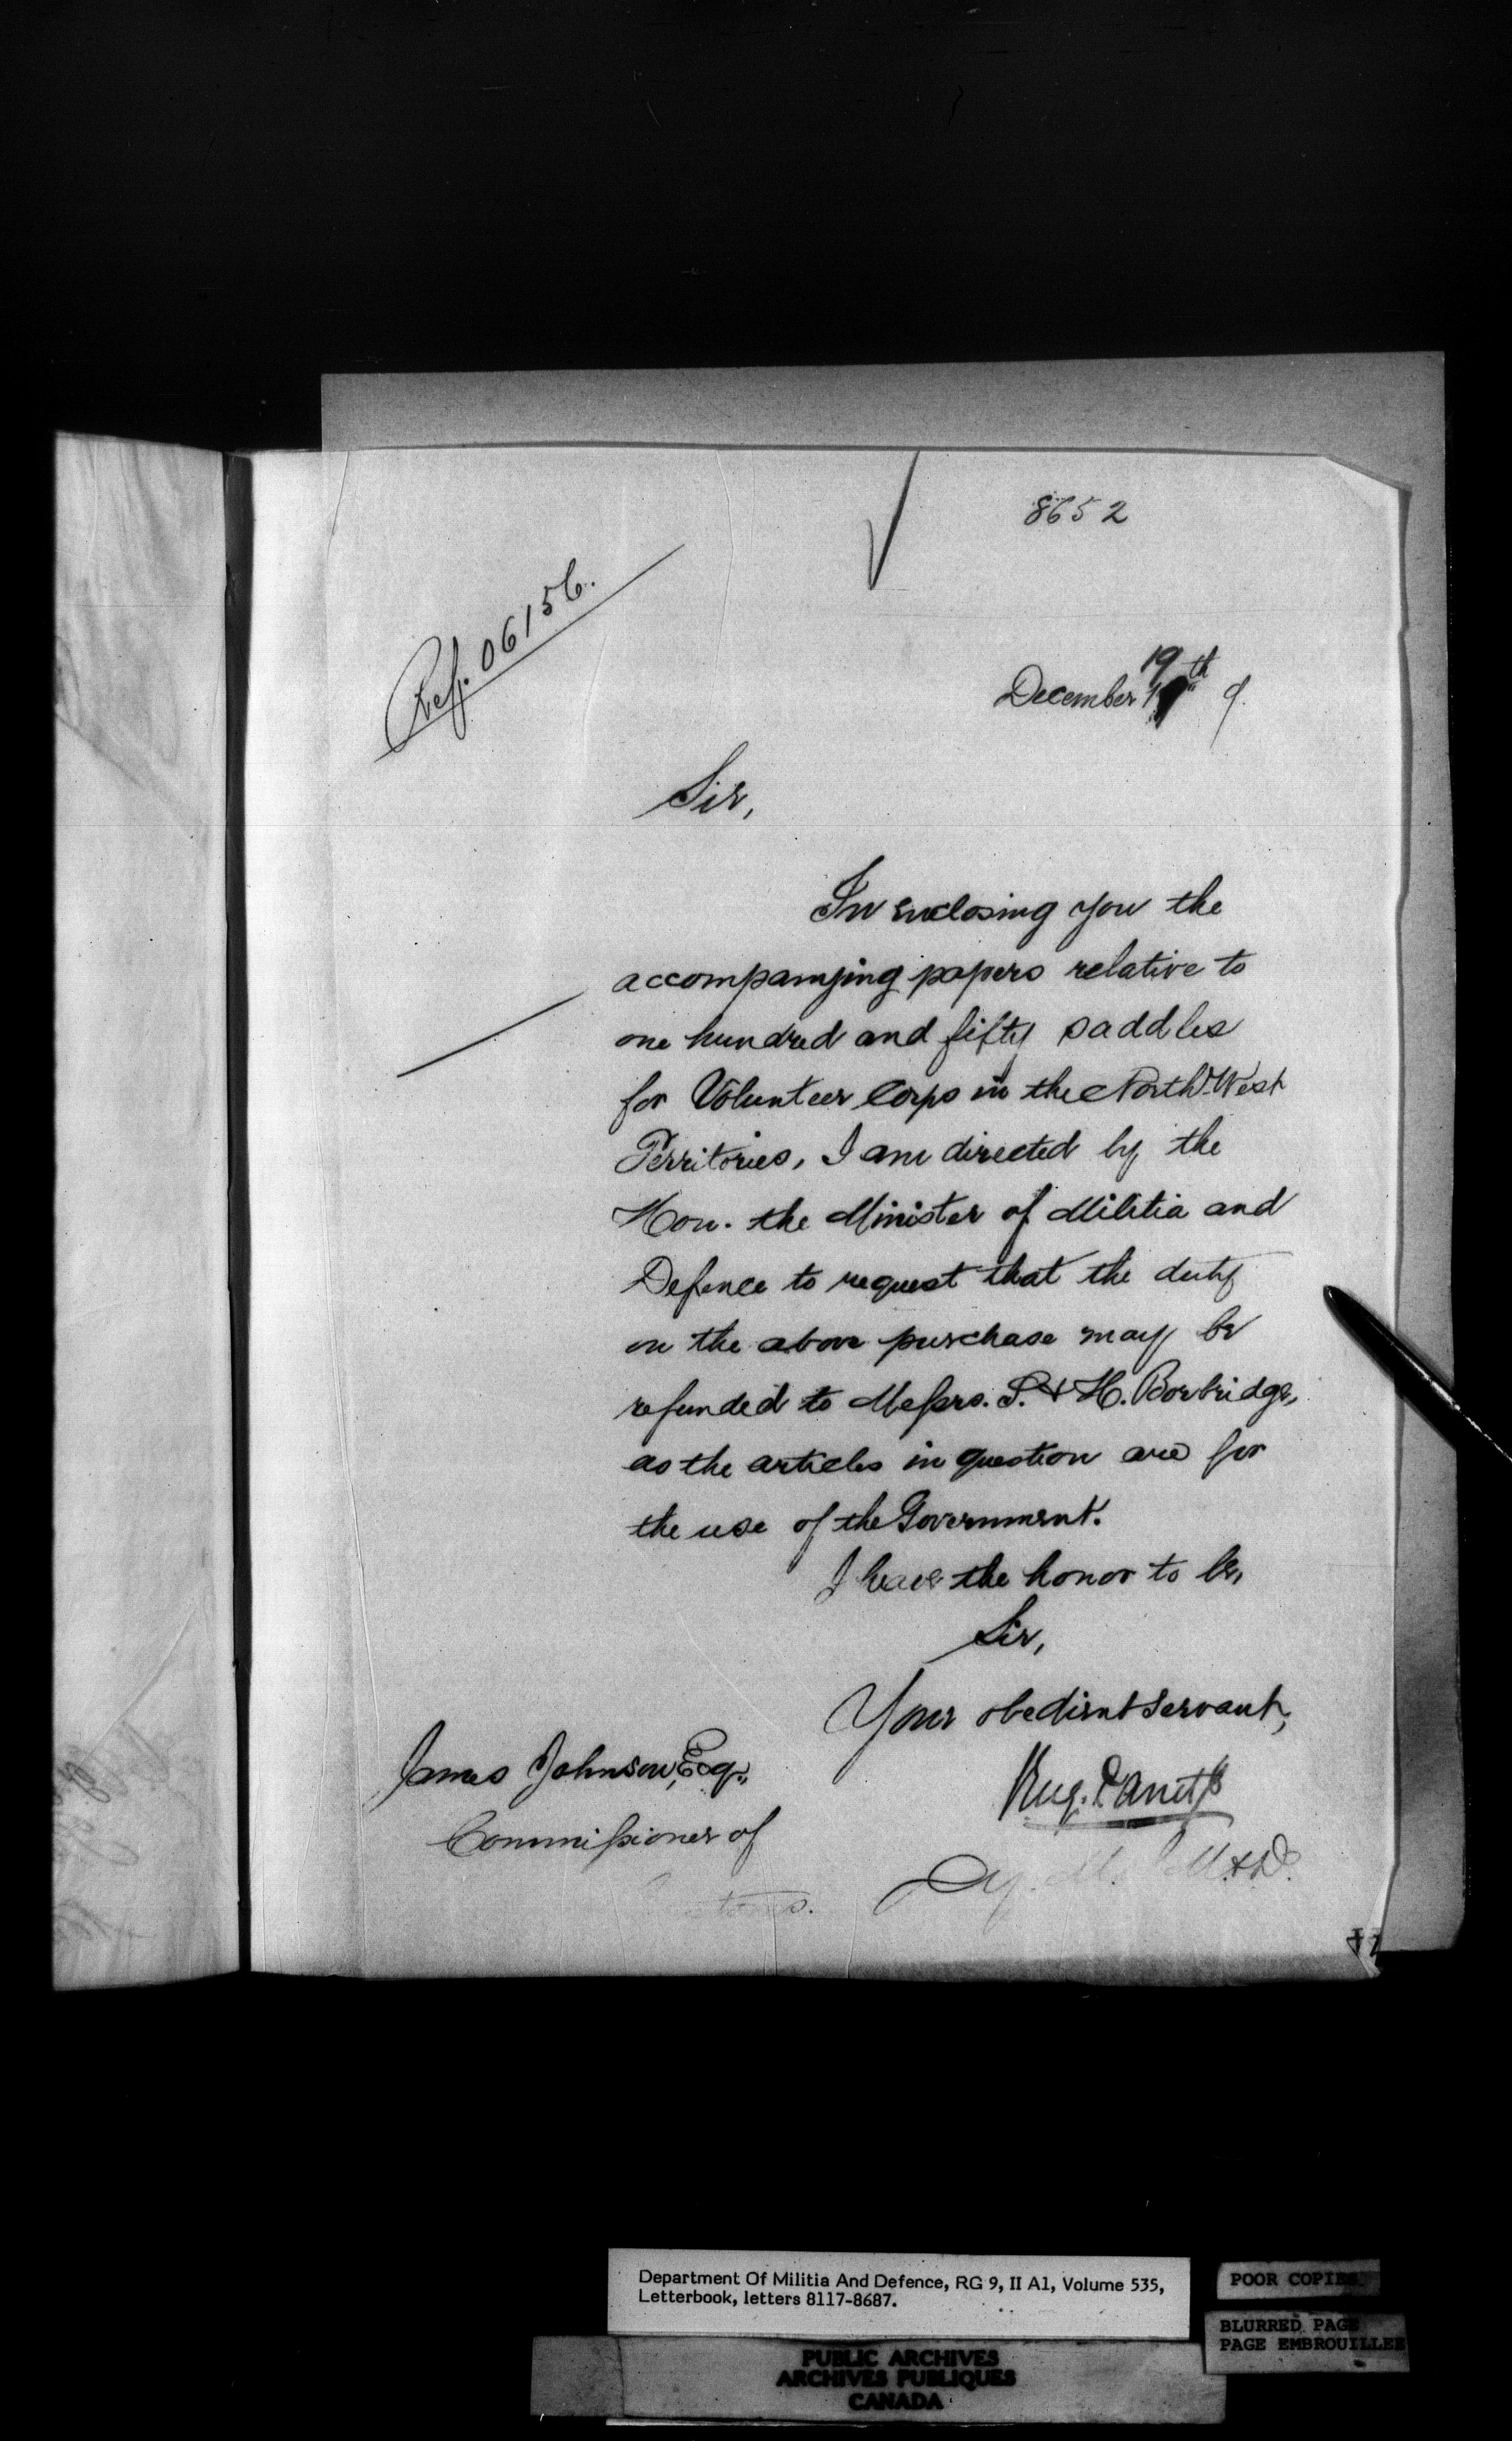 8652
Ref. 06156.
December 19th 9.
Sir,
In enclosing you the
accompanying papers relative to
one hundred and fifty saddles
for Volunteer Corps in the North-West
Territories, I am directed by the
Hon. the Minister of Militia and
Defence to request that the duty
on the above purchase may be
refunded to Messrs. S. & H. Borbridge,
as the articles in question are for
the use of the Government.
I have the honor to be,
Sir,
Your obedient servant,
Eug. Panet
James Johnson, Esq.,
Commissioner of
M. & D.
Department Of Militia And Defence, RG 9, II A1, Volume 535,
Letterbook, letters 8117-8687.
POOR COPIES
BLURRED PAGE
PAGE EMBROUILLEE
PUBLIC ARCHIVES
ARCHIVES PUBLIQUES
CANADA